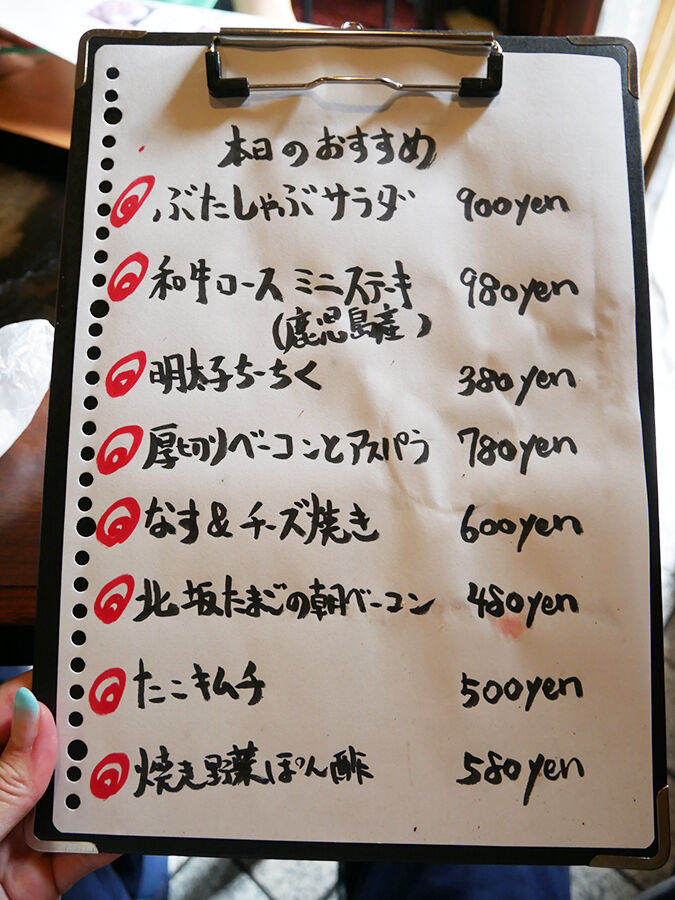 本日のおすすめ
ぶたしゃぶサラダ 900yen
和牛ロース ミニステーキ 980yen
(鹿児島産)
明太子ちーちく 380yen
厚切りベーコンとアスパラ 780yen
なす&チーズ焼き 600yen
北坂たまごの朝ベーコン 480yen
たこキムチ 500yen
焼き野菜ぽん酢 580yen